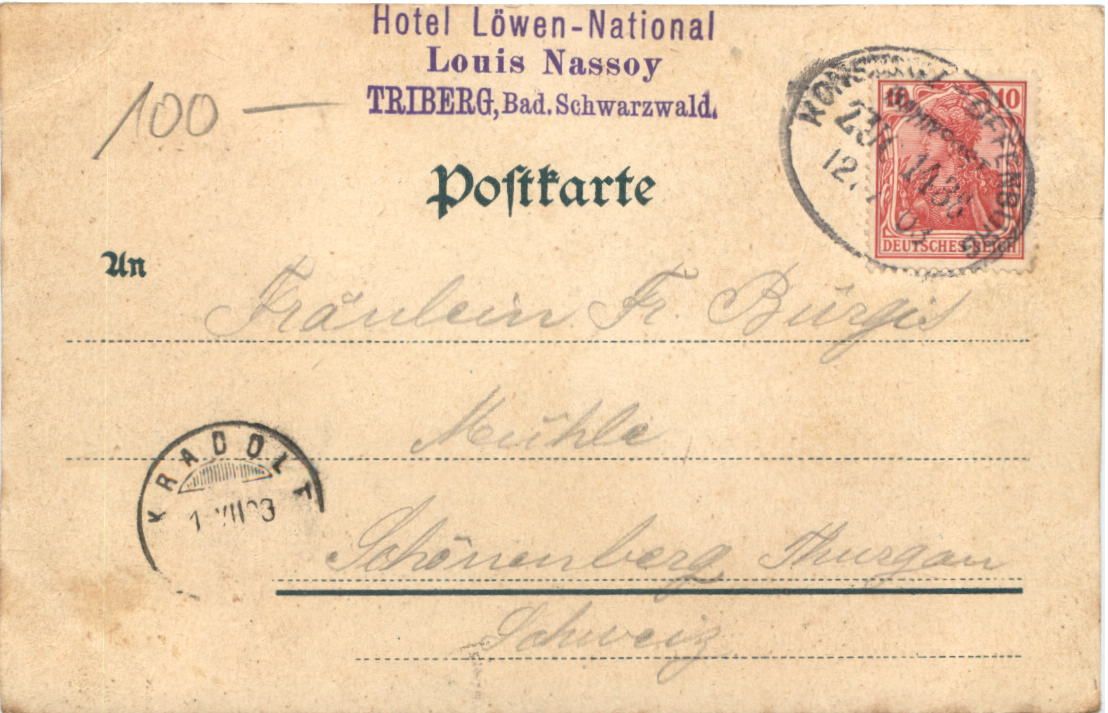 Hotel Löwen-National
Louis Nassoy
TRIBERG, Bad. Schwarzwald.
100 —
Poſtkarte
10
DEUTSCHES REICH
KONSTANZ - OFFENBURG
BAHNPOST
12. 03
An
Fräulein Fr. Bürgis
Mühle
KRADOLF
VII 03
Schönenberg Thurgau
Schweiz